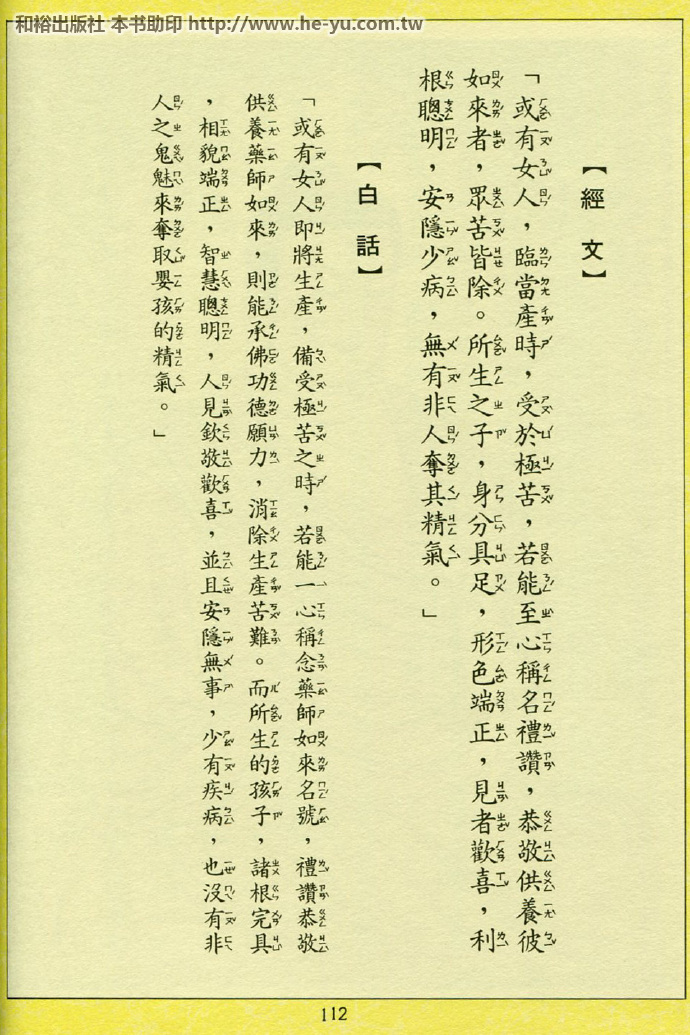 和裕出版社 本书助印 http://www.he-yu.com.tw
【經文】
「或有女人，臨當產時，受於極苦，若能至心稱名禮讚，恭敬供養彼
如來者，眾苦皆除。所生之子，身分具足，形色端正，見者歡喜，利
根聰明，安隱少病，無有非人奪其精氣。」
【白話】
「或有女人即將生產，備受極苦之時，若能一心稱念藥師如來名號，禮讚恭敬
供養藥師如來，則能承佛功德願力，消除生產苦難。而所生的孩子，諸根完具
，相貌端正，智慧聰明，人見欽敬歡喜，並且安隱無事，少有疾病，也沒有非
人之鬼魅來奪取嬰孩的精氣。」
112